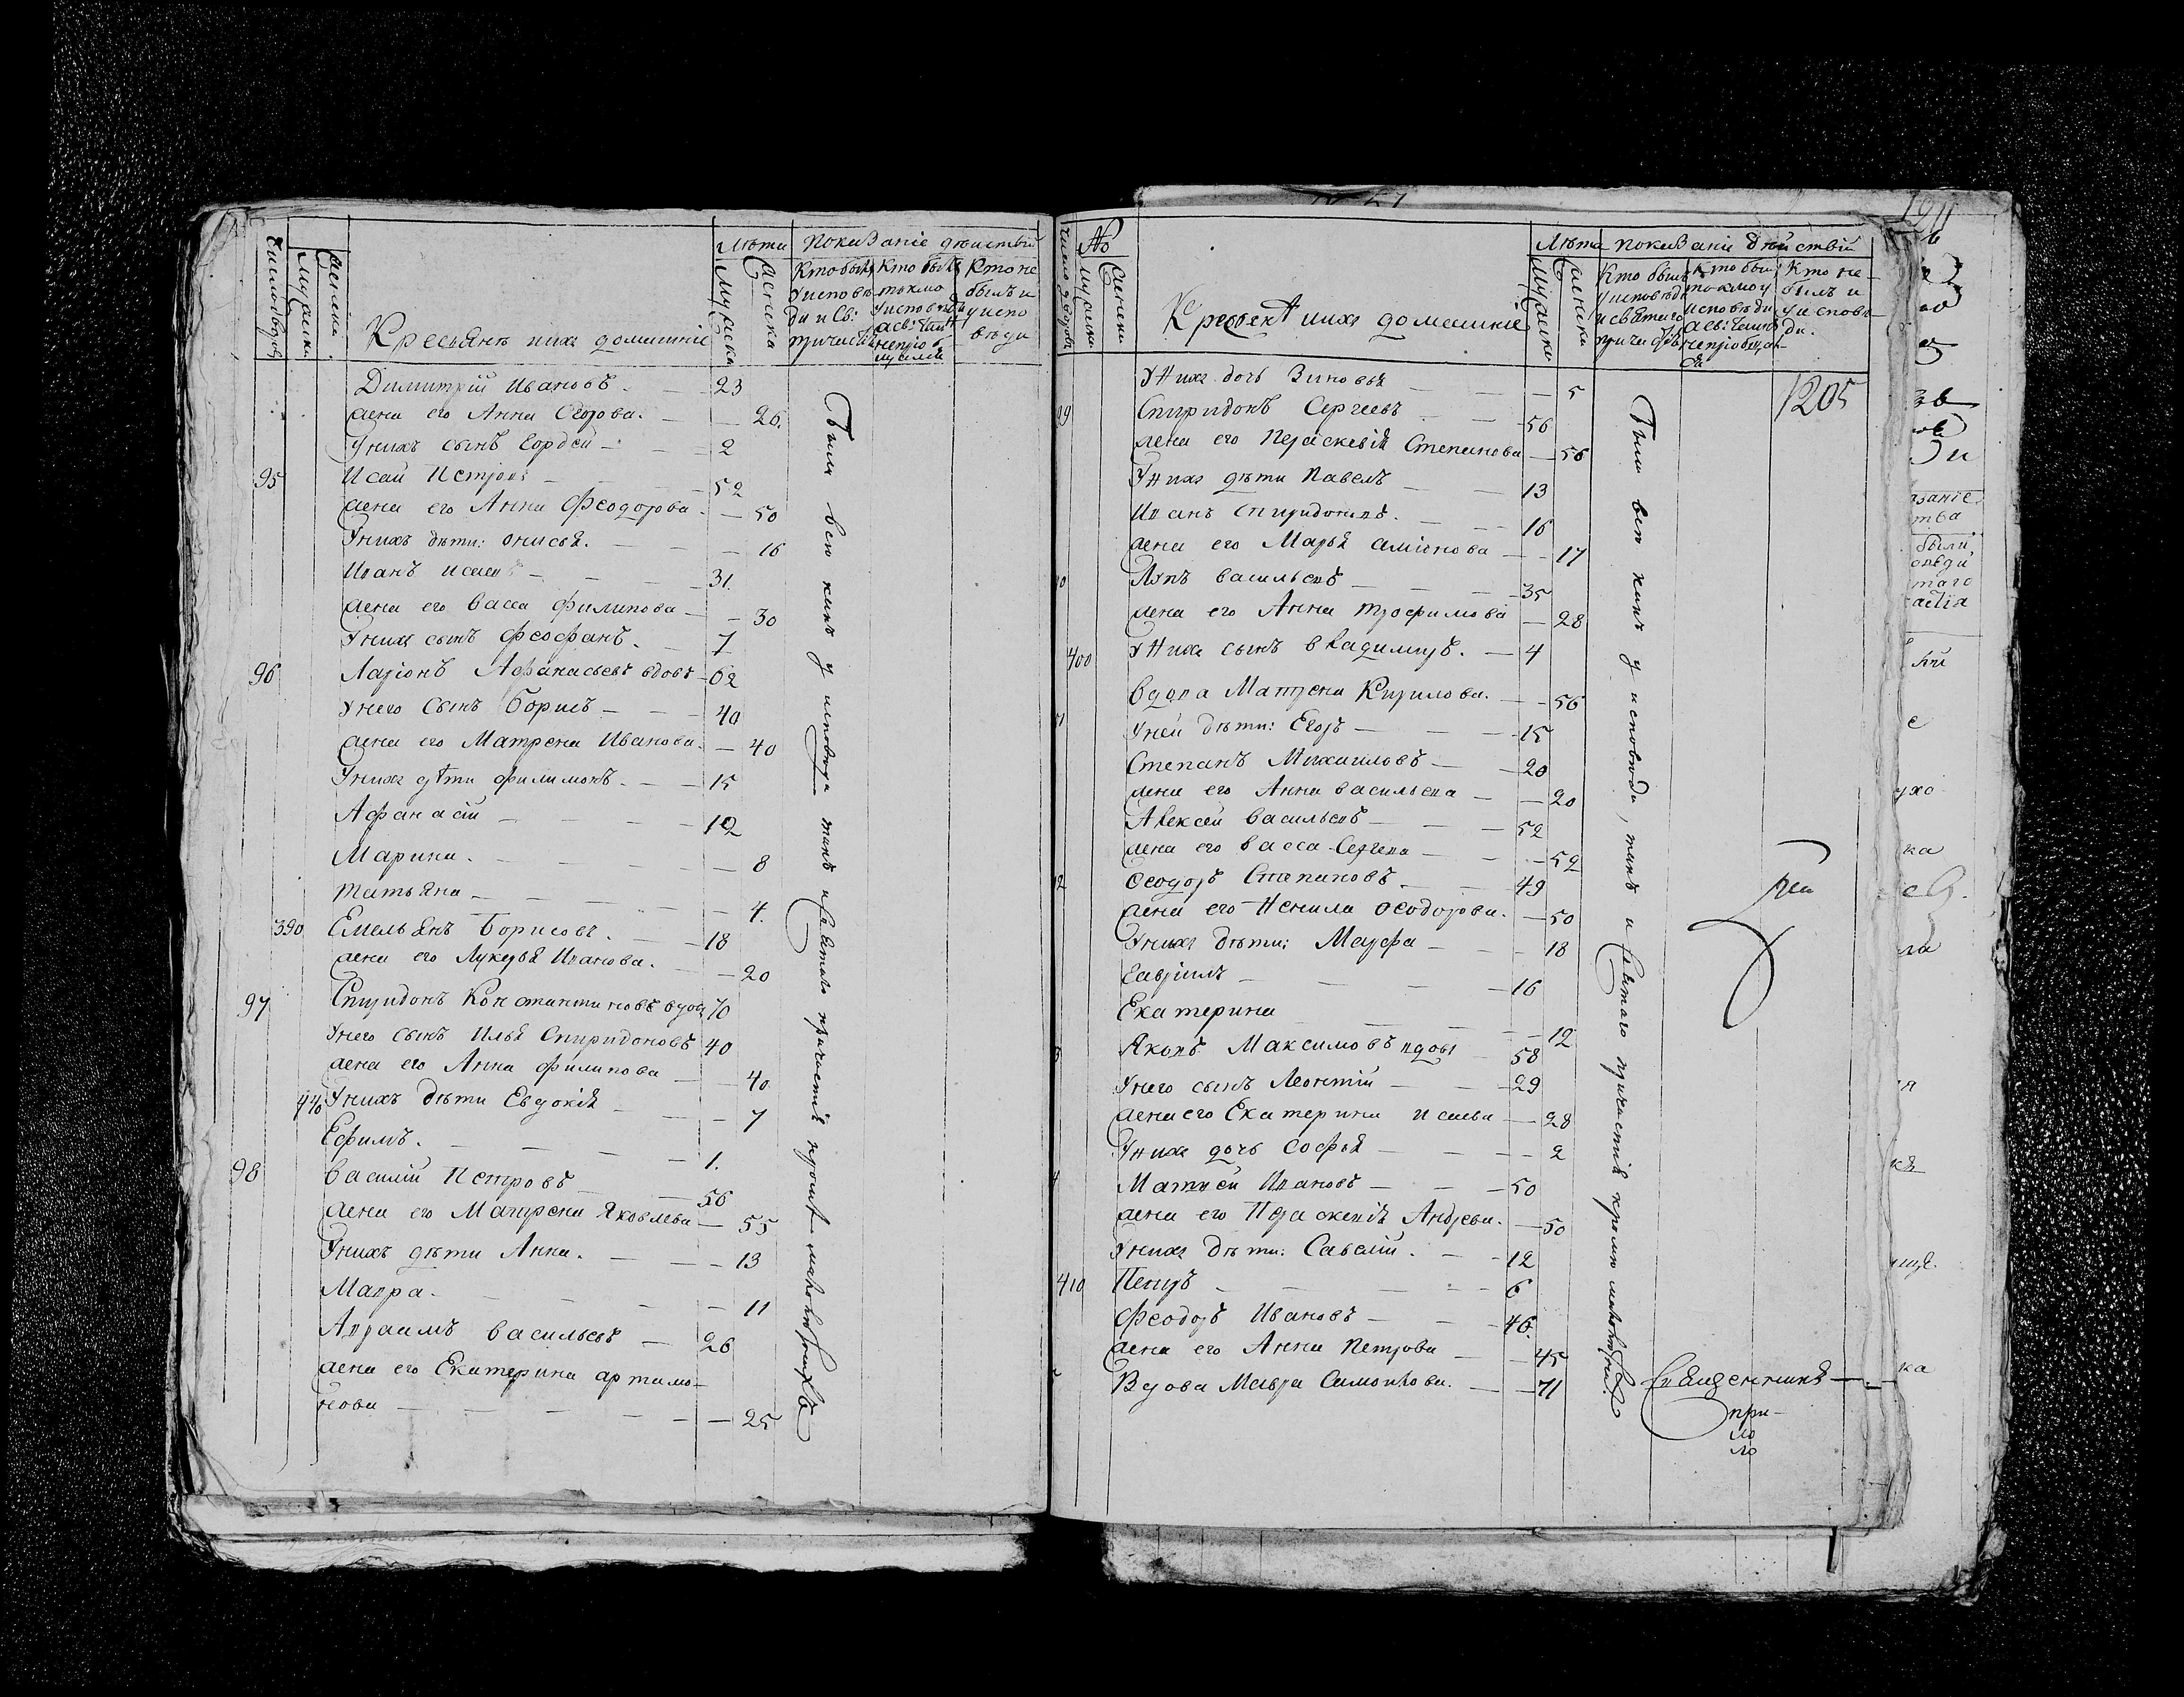 Число дворовъ
Мужеска
Женска
Крестьянѣ ихъ домашніе
Лѣта
Мужеска
Женска
Показаніе дѣиствіи
Кто былъ у исповѣди и Св: причастія
Кто былъ токмо у исповѣди а св: таинъ не пріобщился
Кто не былъ и у исповѣди
Димитрій Ивановъ. — 23
жена его Анна Егорова. — 20.
У нихъ сынъ Гордей — 2
95 Исаи Петровъ — 52
жена его Анна Феодорова. — 50
У нихъ дѣти: Онисья. — 16
Иванъ Исаевъ — 31.
жена его Васса Филипова — 30
У нихъ сынъ Феофанъ. — 7
96 Ларіонъ Афанасьевъ вдовъ — 62
У него сынъ Борисъ — 40
жена его Матрена Иванова. — 40
У нихъ дѣти Филимонъ. — 15
Афанасій — 12
Марина. — 8
Татьяна — 4.
390 Емельянъ Борисовъ. — 18
жена его Лукерья Иванова. — 20
97 Спиридонъ Константиновъ вдовъ 70
У него сынъ Илья Спиридоновъ 40
жена его Анна Филипова — 40
440 У нихъ дѣти Евдокія — 7
Ефимъ. — 1.
98 Василій Петровъ — 56
жена его Матрена Яковлева — 55
У нихъ дѣти Анна. — 13
Мавра. — 11
Авраамъ Васильевъ — 26
жена его Екатерина Артамо-
нова — 25
Были всѣ какъ у исповѣди такъ и святаго причастія кромѣ малолѣтныхъ
Число дворовъ
№
Мужеска
Женска
Крестьянѣ ихъ домашніе
Лѣта
Мужеска
Женска
Показаніе дѣйствіи
Кто былъ у исповѣди и святаго причастія
Кто был токмо у исповѣди а св: таинъ не пріобщался
Кто не былъ и у исповѣди.
1205
У нихъ дочь Зиновья — 5
99 Спиридонъ Сергеевъ — 56
жена его Параскевія Степанова — 56
У нихъ дѣти Павелъ — 13
Иванъ Спиридоновъ. — 16
жена его Марья — 17
Васильевъ — 35
жена его Анна Трофимова — 28
400 У нихъ сынъ Владимиръ. — 4
Вдова Матрена Кирилова. — 56
У ней дѣти: Егоръ — 15
Степанъ Михаиловъ — 20
жена его Анна Васильева — 20
Алексей Васильевъ — 52
жена его Васса Сергева — 52
Феодоръ Степановъ. — 49
жена его Ненила Феодорова. — 50
У нихъ дѣти: Марфа — 18
Гавріилъ — 16
Екатерина — 12
Яковъ Максимовъ вдовъ 58
У него сынъ Леонтій — 29
жена его Екатерина Исаева — 28
У нихъ дочь Софья — 2
Матвей Ивановъ — 50
жена его Параскевія Андрева. — 50
У нихъ дѣти: Савелій. — 12
410 Петръ — 6
Феодоръ Ивановъ — 46.
жена его Анна Петрова — 45
Вдова Мавра Симонова. — 71
Были всѣ какъ у исповѣди, такъ и святаго причастія кромѣ малолѣтныхъ
Священникъ —